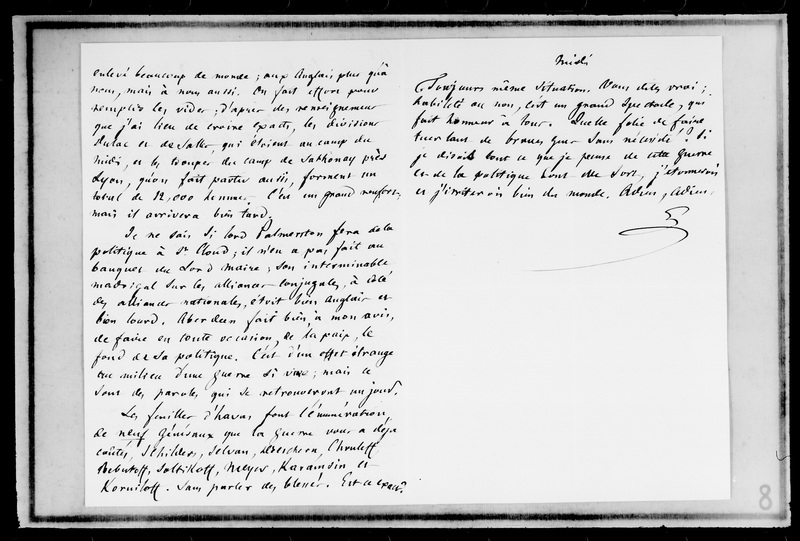 enlevé beaucoup de monde ; aux Anglais plus qu'à
nous, mais à nous aussi. On fait effort pour
remplir les vides ; d'après des renseignemens
que j'ai lieu de croire exacts, les divisions
Dulac et de Salles, qui étoient au camp du
midi, et les troupes du camp de Sathonay près
Lyon, qu'on fait partir aussi, forment un
total de 12,000 hommes. C'est un grand renfort,
mais il arrivera bien tard.
Je ne sais si lord Palmerston fera de la
politique à St Cloud ; il n'en a pas fait au
banquet du Lord Maire ; son interminable
madrigal sur les alliances conjugales, à côté
des alliances nationales, étoit bien Anglais et
bien lourd. Aberdeen fait bien, à mon avis,
de faire en toute occasion, de la paix, le
fond de sa politique. C'est d'un effet étrange
au milieu d'une guerre si vive ; mais ce
sont des paroles qui se retrouveront un jour.
Les feuilles d'havas font l'énumération
de neuf Généraux que la guerre vous a déjà
coûtés, Schilders, Selvan, Chruleff
Bebutoff, Soltikoff, Meyer, Karamsin et
Korniloff. Sans parler des blessés. Est-ce exact?
Midi
Toujours même situation. Vous dites vrai ;
habileté ou non, c'est un grand spectacle, qui
fait honneur à tous. Quelle folie de faire
tuer tant de braves gens sans nécessité ! Si
je disois tout ce que je pense de cette guerre
et de la politique dont elle sort, j'étonnerois
et j'irriterois bien du monde. Adieu, Adieu.
G
8